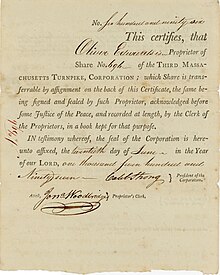 No. six hundred and ninety six
This certifies, that
Oliver Edwards Proprietor of
Share No. 696. of the THIRD MASSA-
CHUSETTS TURNPIKE, CORPORATION; which Share is trans-
ferable by assignment on the back of this Certificate, the same be-
ing signed and sealed by such Proprietor, acknowledged before
some Justice of the Peace, and recorded at length, by the Clerk of
the Proprietors, in a book kept for that purpose.
IN testimony whereof, the seal of the Corporation is here-
unto affixed, the twentieth day of June in the Year
of our LORD, one thousand seven hundred and
Ninety seven Caleb Strong President of the
Corporation.
Attest, Jona. Woodbridge Proprietor's Clerk.